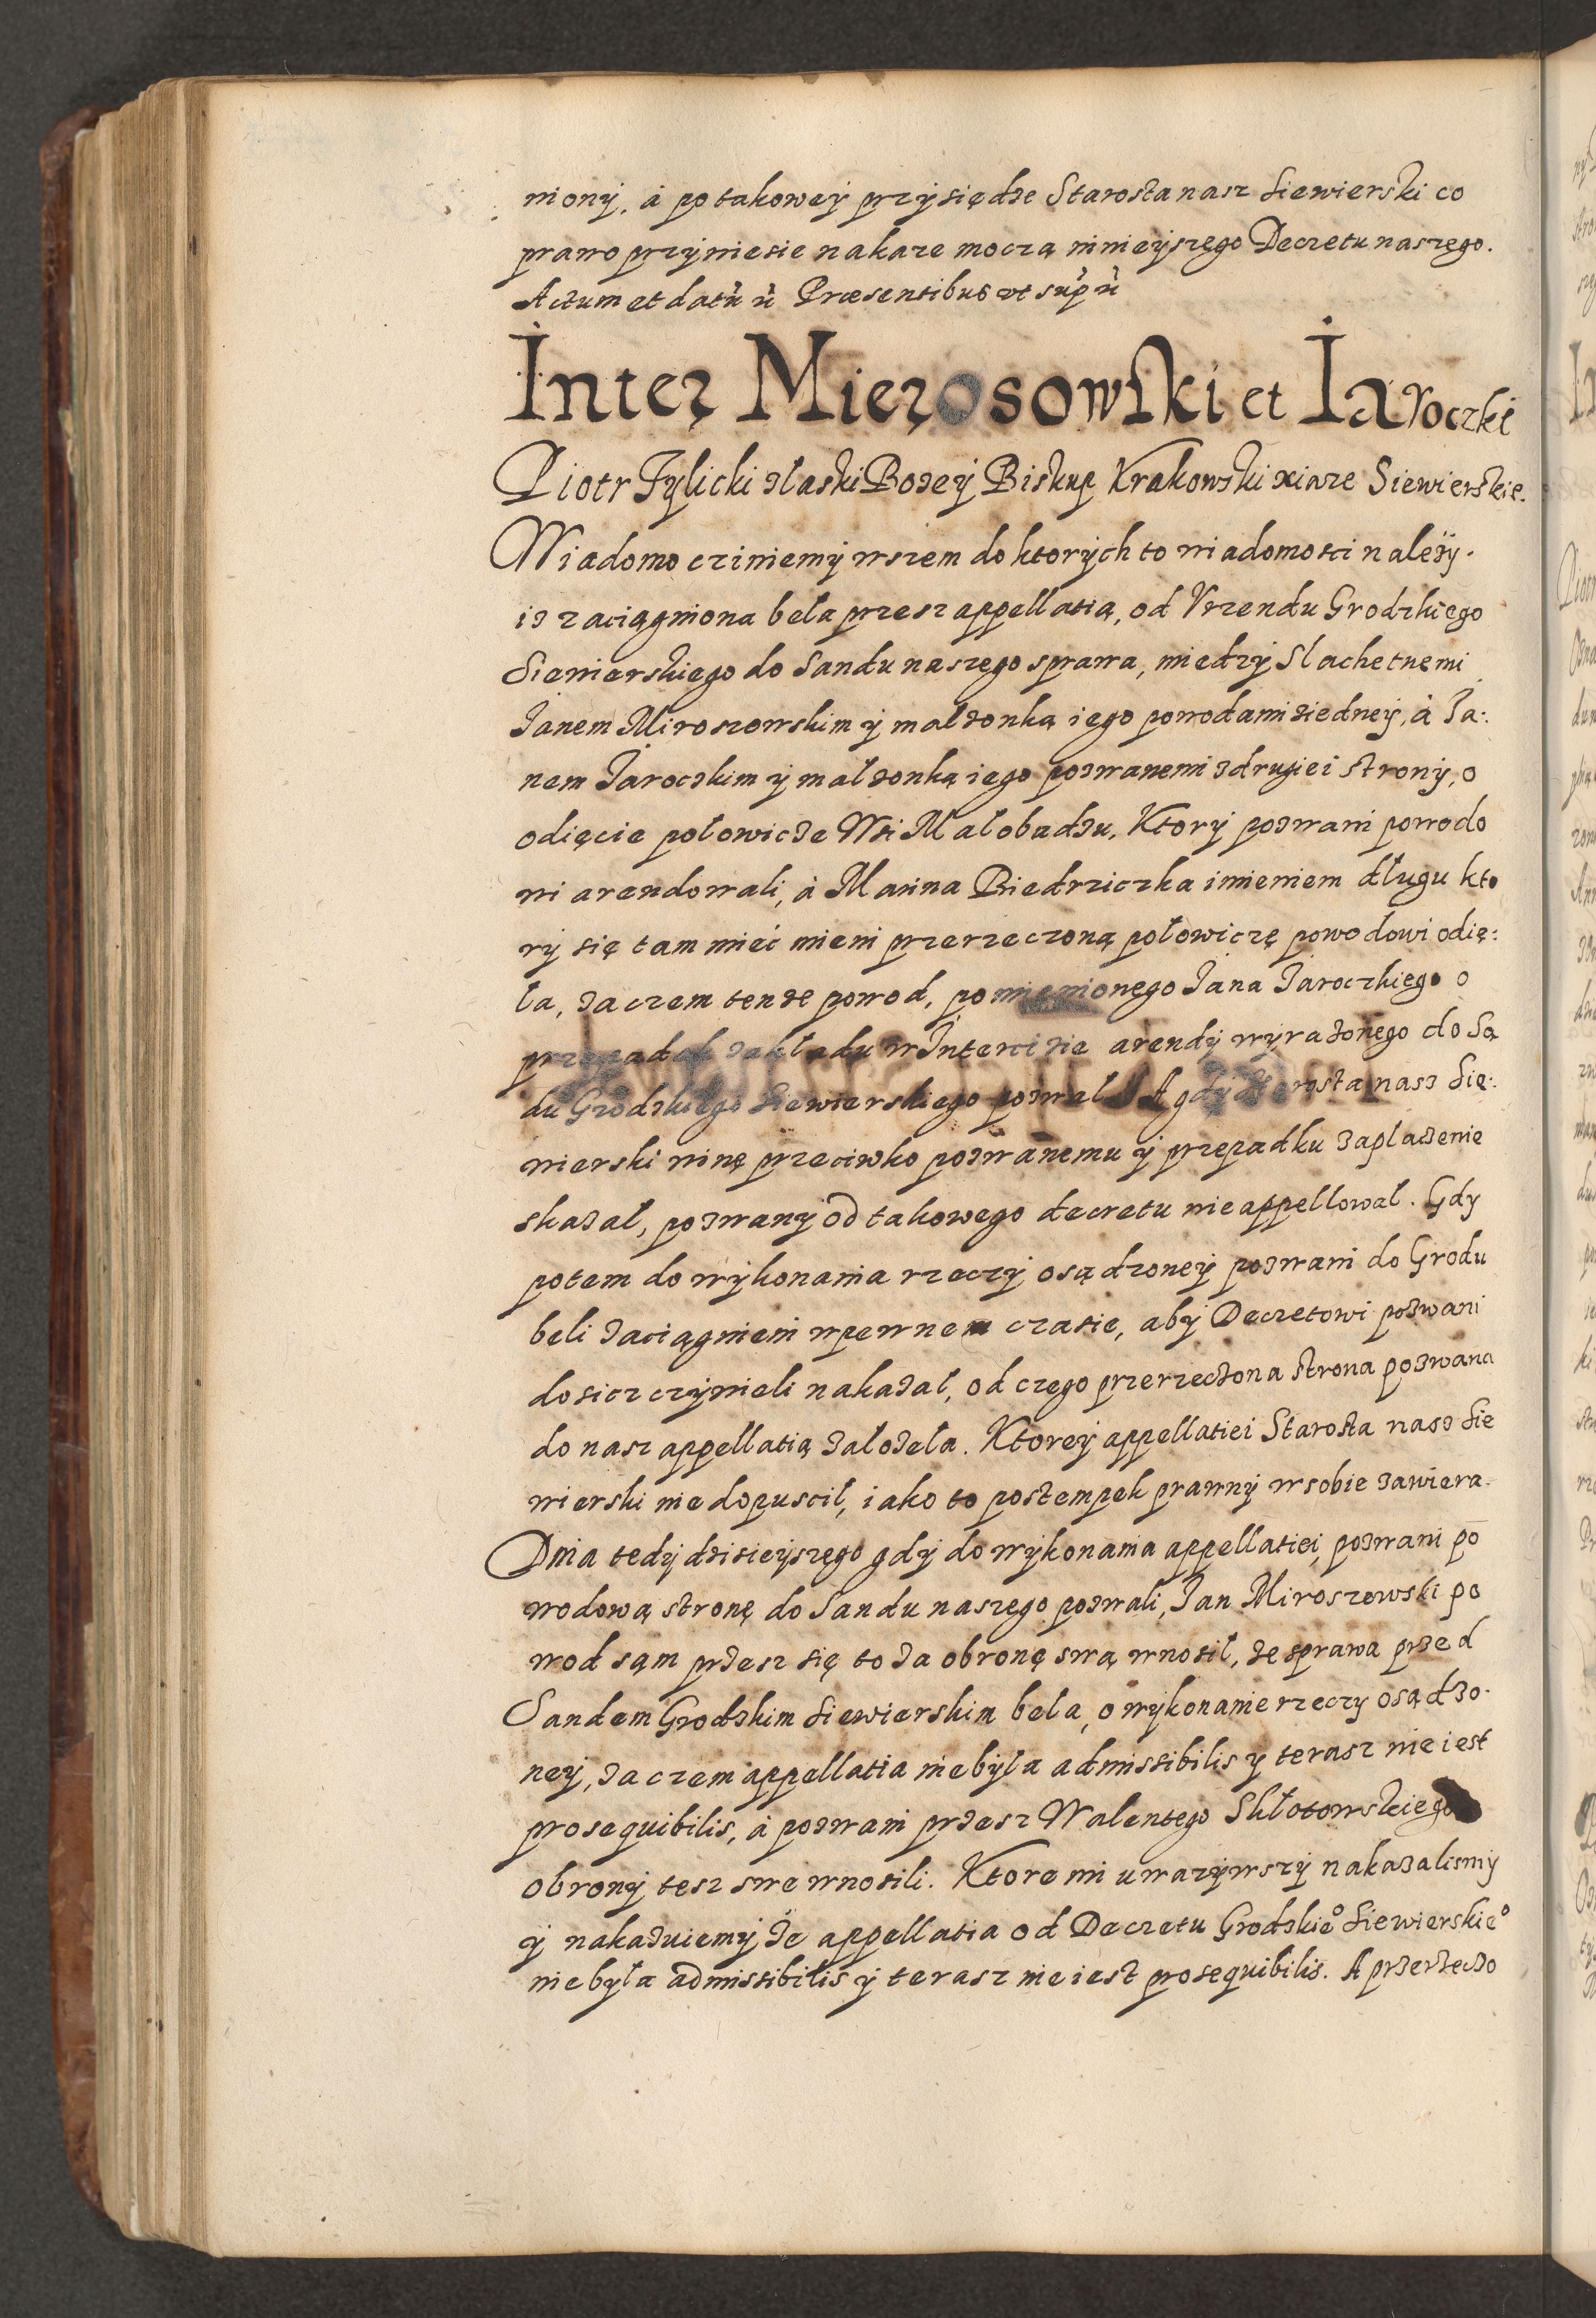 niony, à po takowey przysiędze Starosta nasz Siewierski co
prawo przyniesie nakaze moczą ninieyszego Decretu naszego.
Actum et datũ ũ Præsentibus vt sup̃ ũ
Inter Mierosowski et Iaroczki
Piotr Tylicki z łaski Bozey Biskup Krakowski xiaze Siewierskie.
Wiadomo cziniemy wszem do ktorych to wiadomosci należy.
iz zaciągniona beła przesz appellatią, od Vrzendu Grodzkiego
Siewierskiego do Sandu naszego sprawa, miedzy Slachetnemi
Janem Miroszowskim y malzonką iego powodami ziedney, à Ja:
nem Jaroczkim y malzonką iego pozwanemi z drugiei strony, o
odięcie połowicze Wsi Małobadzu, Ktory pozwani powodo
wi arendowali, à Manna Biedrziczka imieniem długu kto
ry się tam mieć mieni przerzeczoną połowiczę powodowi odię:
ła, zaczem tenze powod, pomienionego Jana Jaroczkiego o
przepadek zakładu w Intercizie arendy wyrazonego do Są
du Grodzkiego Siewierskiego pozwał. A gdy Starosta nasz Sie:
wierski winę przeciwko pozwanemu y przepadku zaplaczenie
skazał, pozwany od takowego decretu nie appellowal. Gdy
potem do wykonania rzeczy osądzoney pozwani do Grodu
beli zaciągnieni w pewnem czasie, aby Decretowi pozwani
dosicz czynieli nakazał, od czego przerzeczona strona pozwana
do nasz appellatią założeła. Ktorey appellatiei Starosta nasz Sie
wierski nie dopuscił, iako to postempek prawny w sobie zawiera.
Dnia tedy dzisieyszego gdy do wykonania appellatiei pozwani po
wodową stronę do Sandu naszego pozwali, Jan Miroszewski po
wod sąm przesz się to za obronę swą wnosił, ze sprawa przed
Sandem Grodzkim Siewierskim beła, o wykonanie rzeczy osądzo.
ney, zaczem appellatia nie była admissibilis y terasz nie iest
prosequibilis, à pozwani przesz Walentego Skłotowskiego
obrony tesz swe wnosili. Ktore mi uwazywszy nakazalismy
y nakazuiemy ze appellatia od Decretu Grodzkie° Siewierskie°
nie była admissibilis y terasz nie iest prosequibilis. A przerzeczo